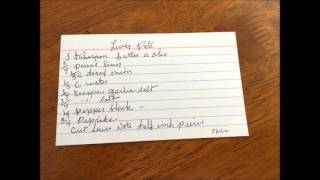 Liver Pate
3 tablespoon butter or oleo
1/2 pound liver
1/2 c diced onion
1/2 C water
1/4 teaspoon garlic salt
1/2 " salt
1/4 Pepper black
3/4 Paprika
Cut liver into half inch pieces
over